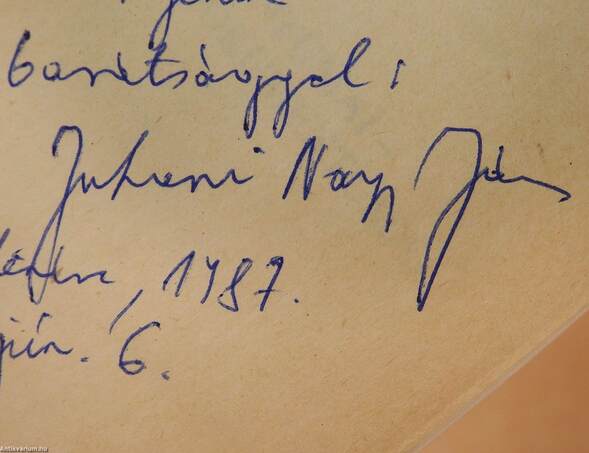 barátsággal:
Juhani Nagy Ján
, 1987.
jún. 6.
Antikvarium.hu